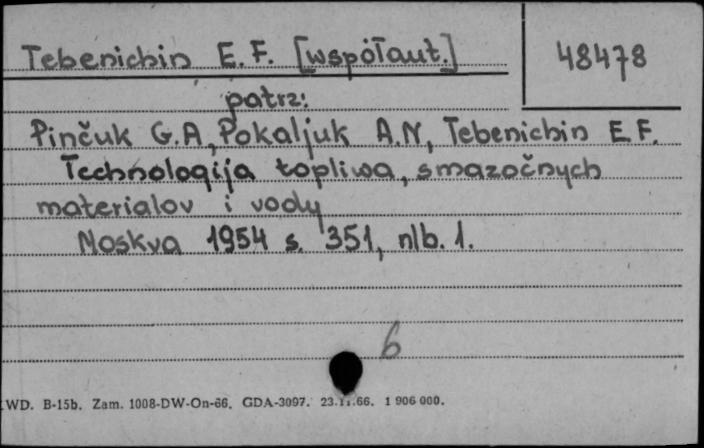 Tebenichin E. F. [współaut.]
48478
patrz:
Pinčuk G.A, Pokaljuk A.N, Tebenichin E F.
Technologija topliwa, smazočnych
materialov i vody
Moskva 1954 s. 351, nlb. 1.
6
WD. B-15b. Zam. 1008-DW-On-66. GDA-3097. 23.11.66. 1 906 000.